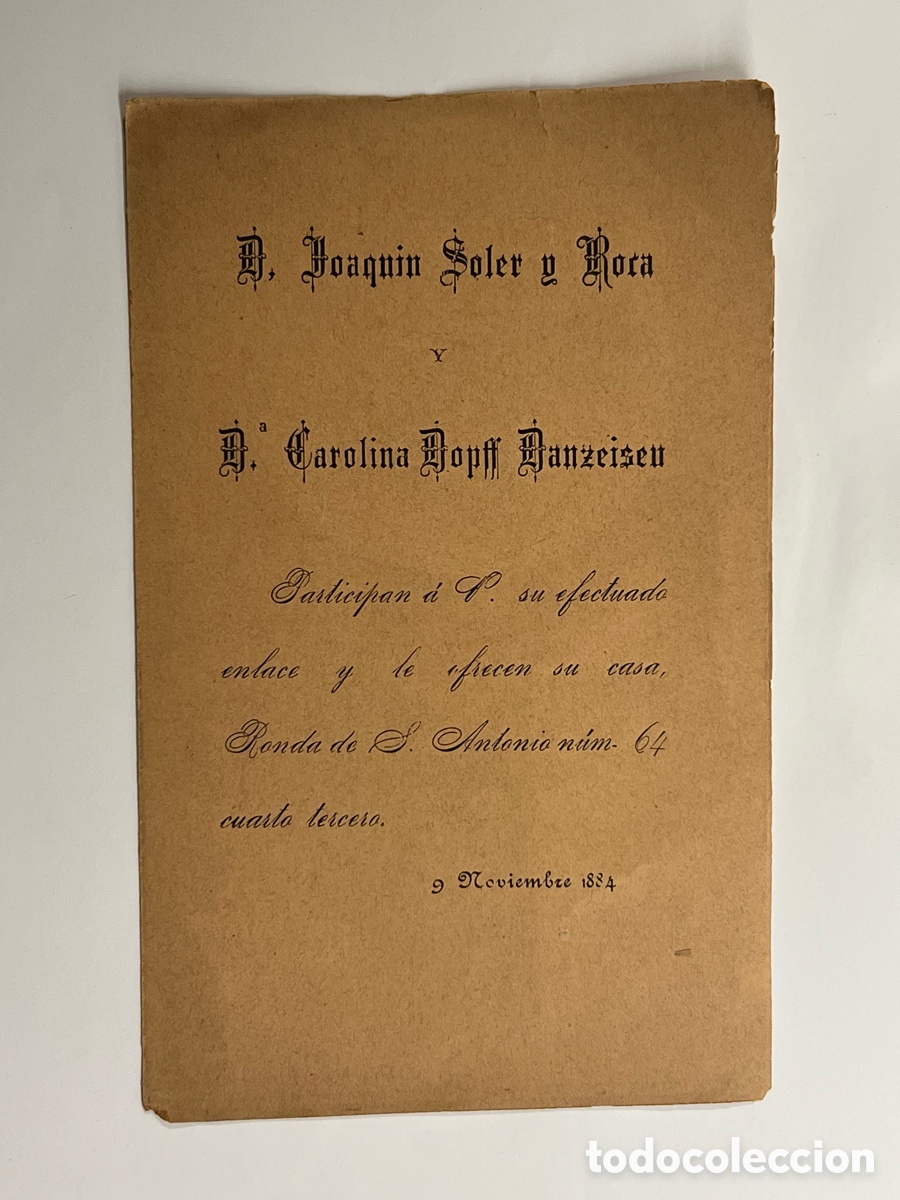 D. Joaquin Soler y Roca
Y
D.ª Carolina Dopff Danzeisen
Participan á V. su efectuado
enlace y le ofrecen su casa,
Ronda de S. Antonio núm. 64
cuarto tercero.
9 Noviembre 1884
todocoleccion